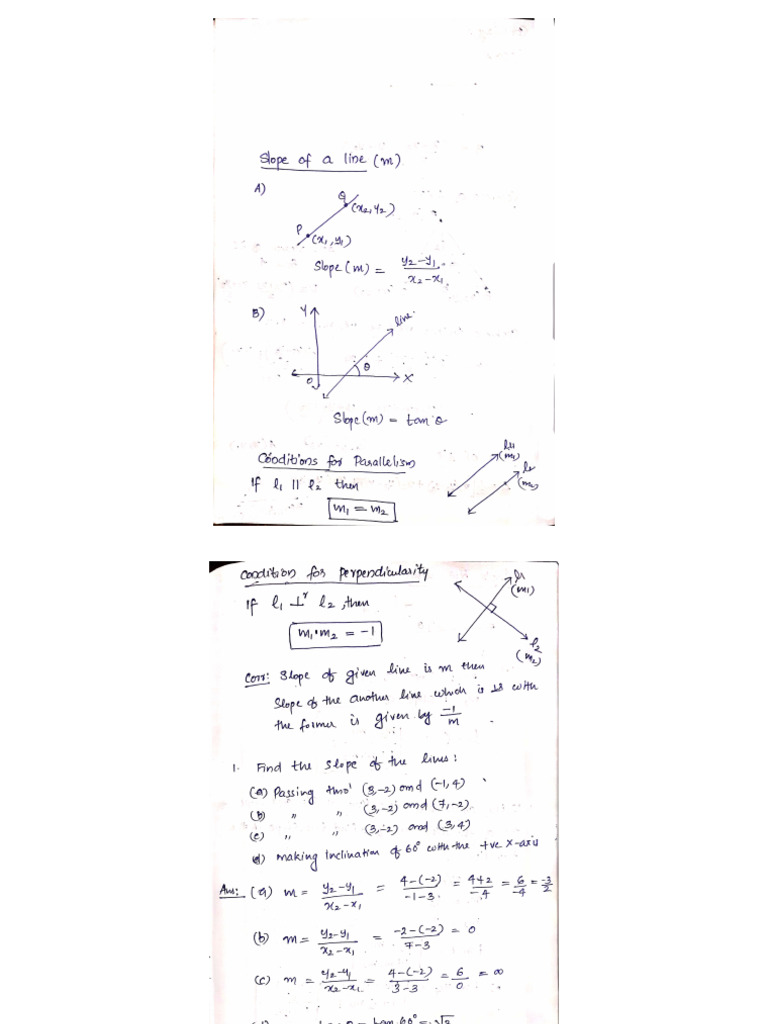 Slope of a line (m)
A)
Q
(x₂, y₂)
P
(x₁, y₁)
Slope (m) = y₂-y₁/x₂-x₁
B)
Y
line
θ
O
X
Slope (m) = tan θ
Conditions for Parallelism
l₁
(m₁)
l₂
(m₂)
If l₁ || l₂ then
m₁ = m₂
Condition for perpendicularity
l₁
(m₁)
If l₁ ⊥ʳ l₂, then
m₁·m₂ = -1
l₂
(m₂)
Corr: Slope of given line is m then
Slope of the another line which is ⊥r with
the former is given by -1/m
1. Find the slope of the lines:
(a) Passing thro' (3,-2) and (-1,4)
(b) " " (3,-2) and (7,-2)
(c) " " (3,-2) and (3,4)
d) making Inclination of 60° with the +ve X-axis
Ans: (a) m = y₂-y₁/x₂-x₁ = 4-(-2)/-1-3 = 4+2/-4 = 6/-4 = -3/2
(b) m = y₂-y₁/x₂-x₁ = -2-(-2)/7-3 = 0
(c) m = y₂-y₁/x₂-x₁ = 4-(-2)/3-3 = 6/0 = ∞
tan 60° = √3